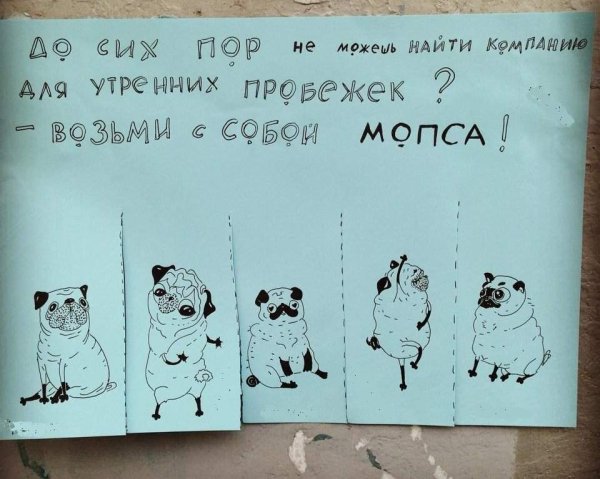 ДО СИХ ПОР НЕ МОЖЕШЬ НАЙТИ КОМПАНИЮ
ДЛЯ УТРЕННИХ ПРОБЕЖЕК ?
- ВОЗЬМИ С СОБОЙ МОПСА !